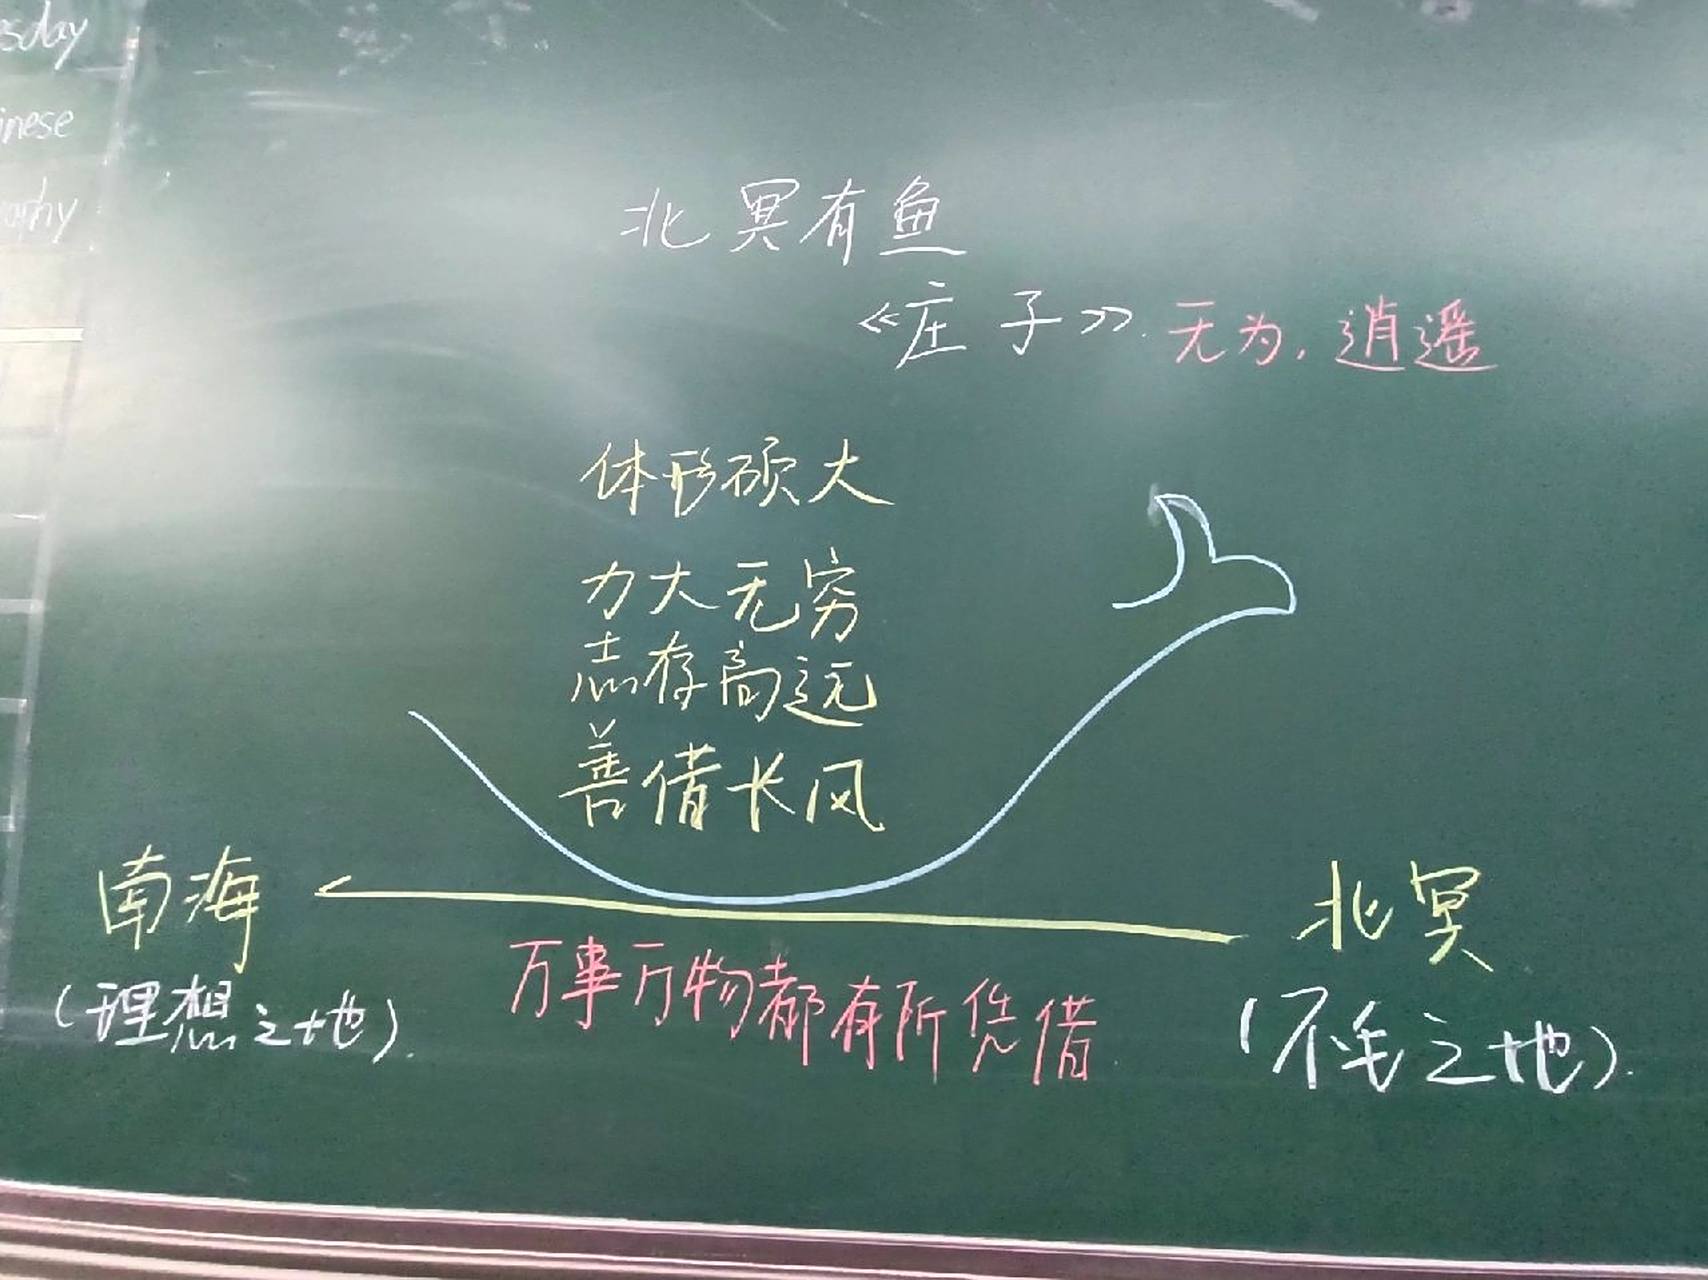 sday
inese
raphy
北冥有鱼
《庄子》 无为，逍遥
体形硕大
力大无穷
志存高远
善借长风
南海
北冥
万事万物都有所凭借
(理想之地).
(不毛之地).